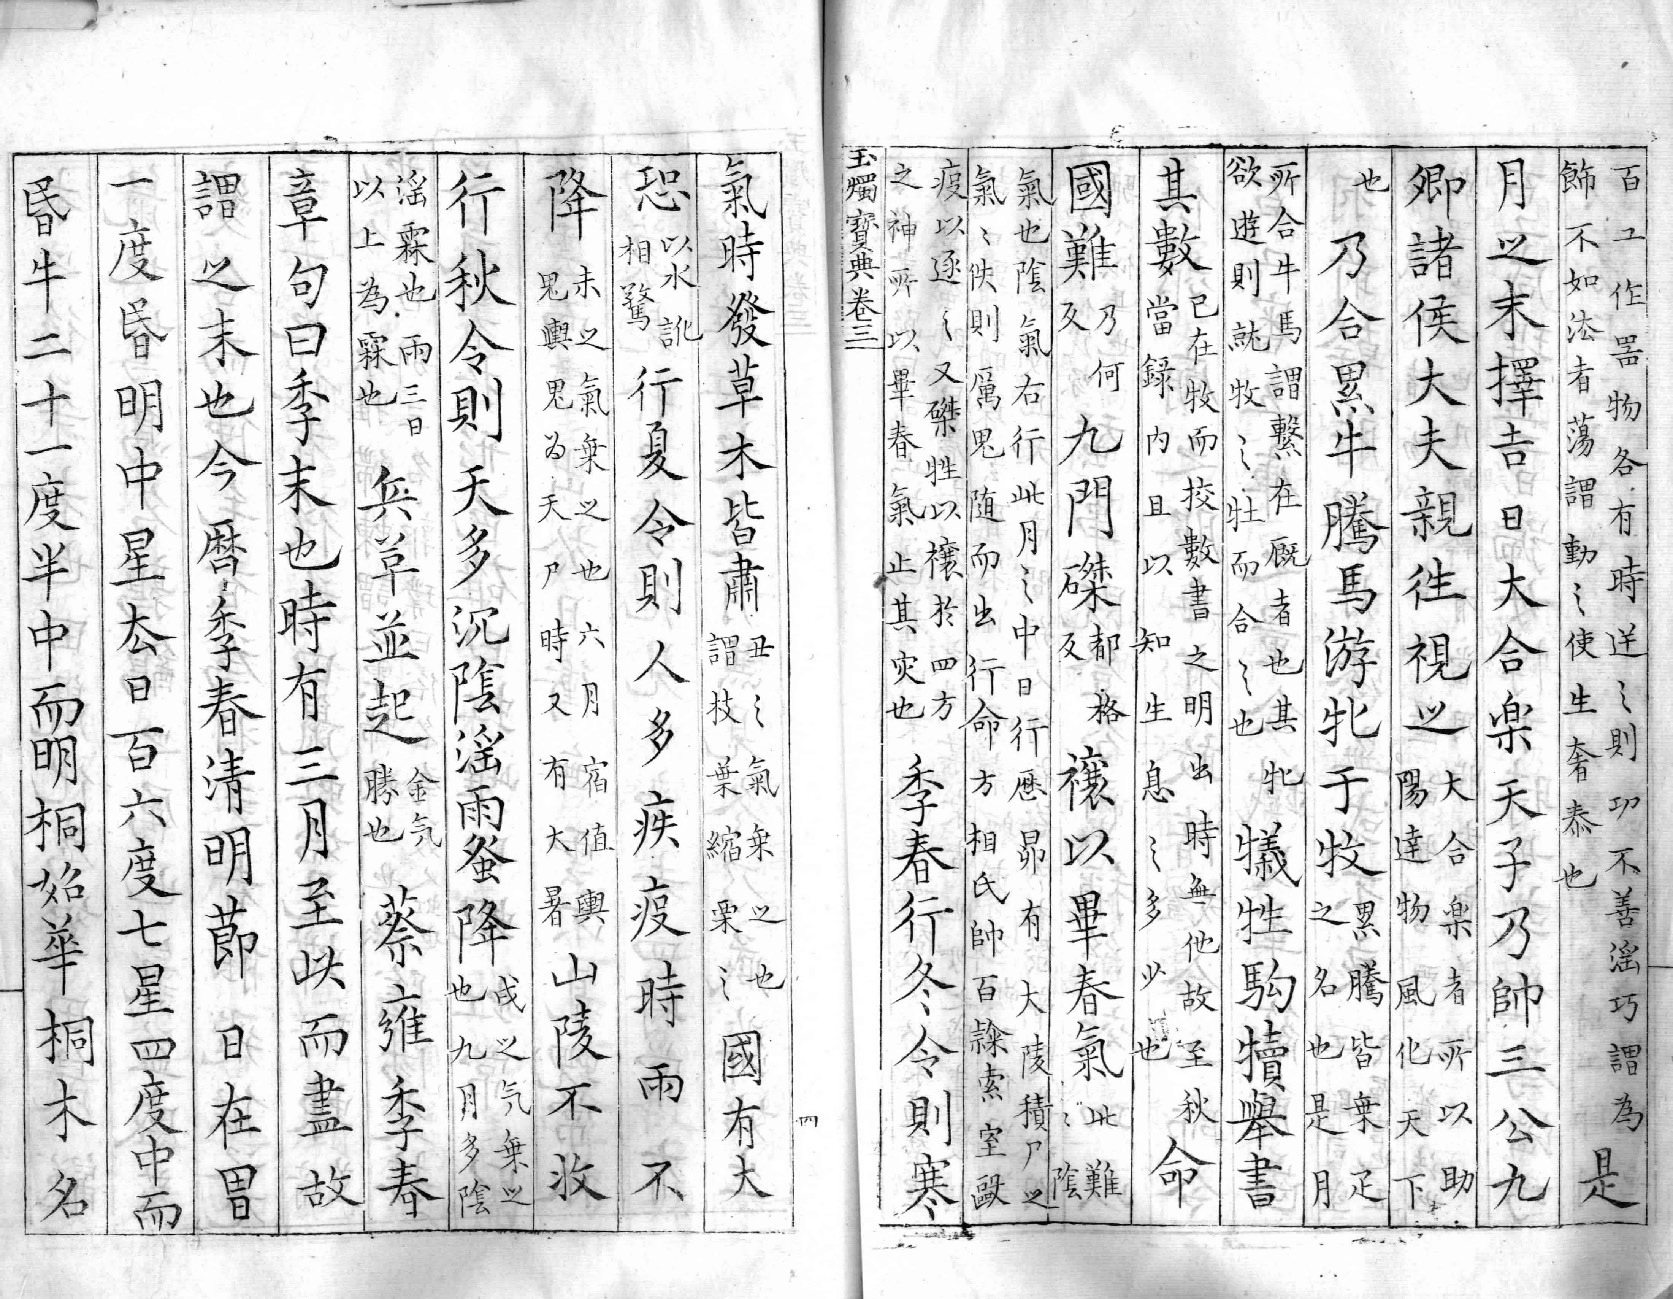 百工作噐物各有時逆〻則㓛不善滛巧謂為
飾不如法者蕩謂動〻使生奢泰也
是
月之末擇吉日大合樂天子乃帥三公九
卿諸侯大夫親徃視之
大合樂者所以助
陽達物風化天下
也
乃合累牛騰馬游牝于牧
累騰皆乗疋
之名也是月
所合牛馬謂繫在厩者也其牝
欲遊則就牧〻牡而合〻也
犧牲駒犢舉書
其數
已在牧而挍數書之明出時無他故至秋
當録内且以知生息〻多少也
命
國難
乃何
反
九門磔
都格
反
禳以畢春氣
此難
〻陰
氣也陰氣右行此月〻中日行歴昴有大陵積尸之
氣〻佚則厲鬼随而出行命方相氏帥百隸索室毆
疫以逐〻又磔牲以禳於四方
之神所以畢春氣止其灾也
季春行冬令則寒
玉燭寶典卷三
四
氣時發草木皆肅
丑〻氣乗之也
謂枝葉縮栗〻
國有大
恐
以水訛
相驚
行夏令則人多疾疫時雨不
降
未之氣乗之也六月宿值輿
鬼輿鬼為天尸時又有大暑
山陵不收
行秋令則天多沉陰滛雨蚤降
戌之气乗之
也九月多陰
滛霖也雨三日
以上為霖也
兵革並起
金气
勝也
蔡雍季春
章句曰季末也時有三月至此而盡故
謂之末也今曆季春清明莭日在胃
一度昏明中星去日百六度七星四度中而
昏牛二十一度半中而明桐始華桐木名